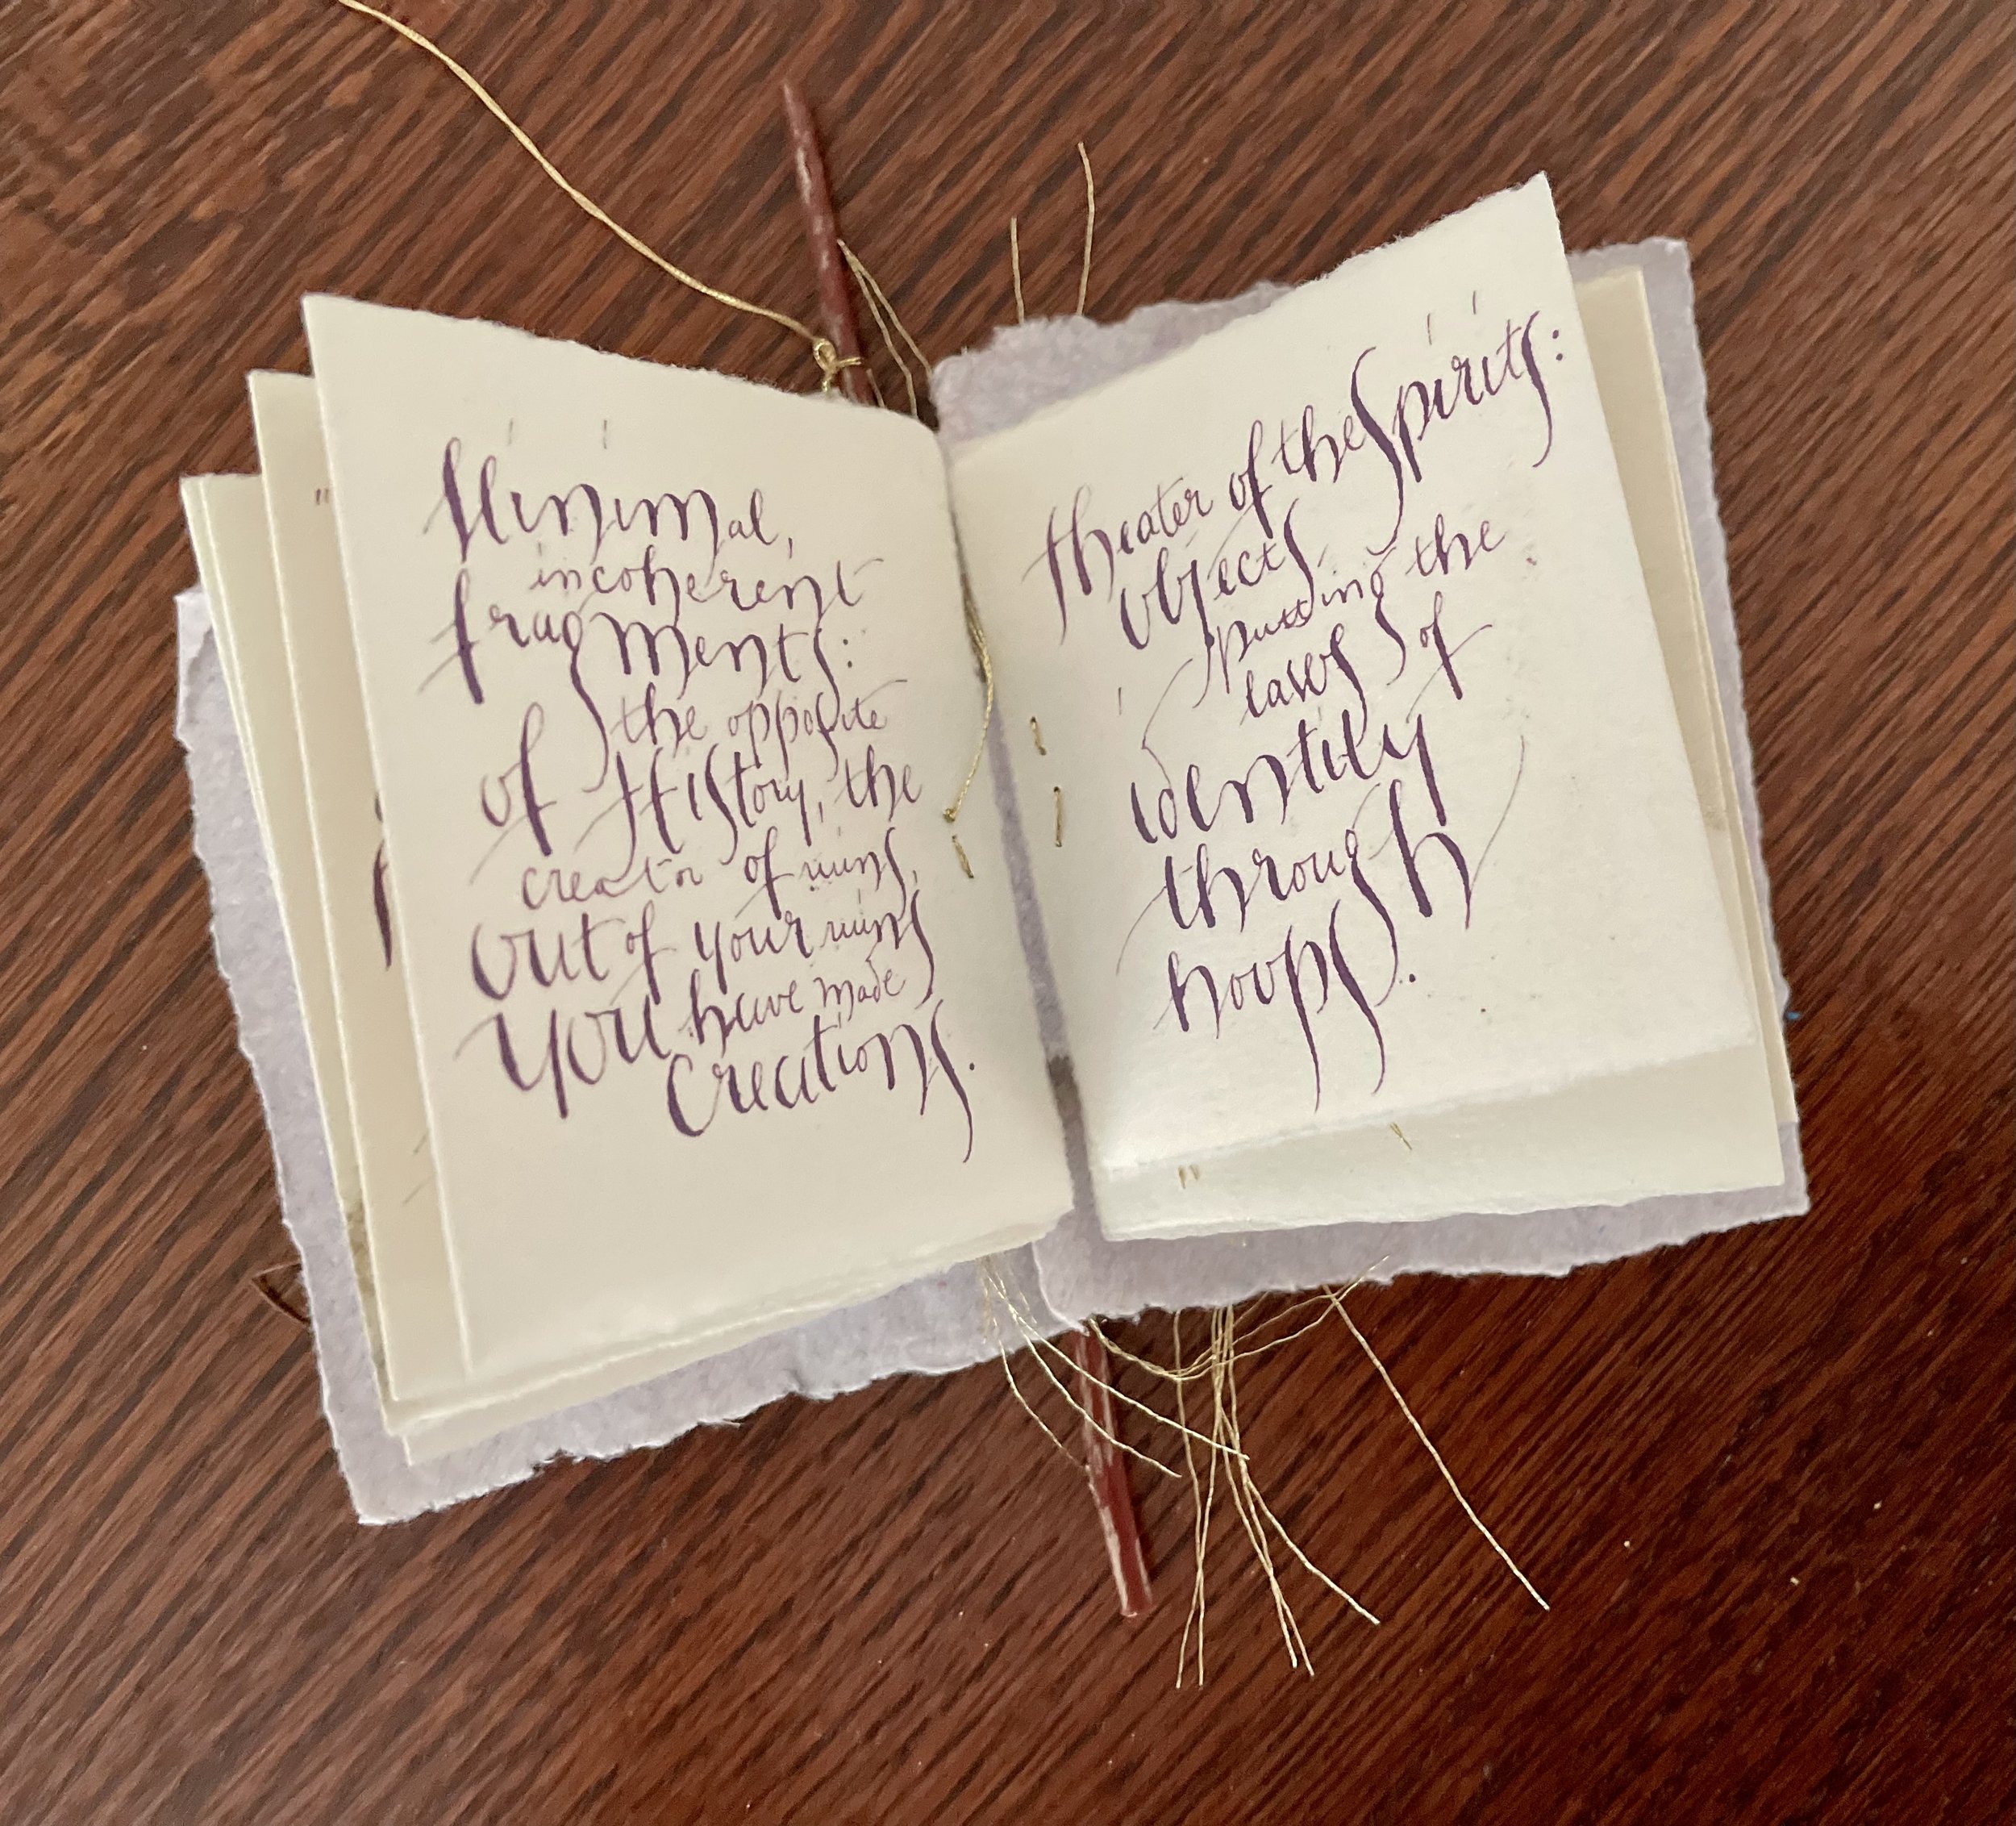 Minimal,
incoherent
fragments:
the opposite
of History, the
creator of ruins,
out of your ruins
you have made
creations.
theater of the spirits:
objects
putting the
laws of
identity
through
hoops.